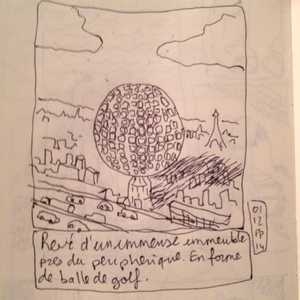 Rêvé d'un immense immeuble
près du périphérique. En forme
de balle de golf.
01
12
14